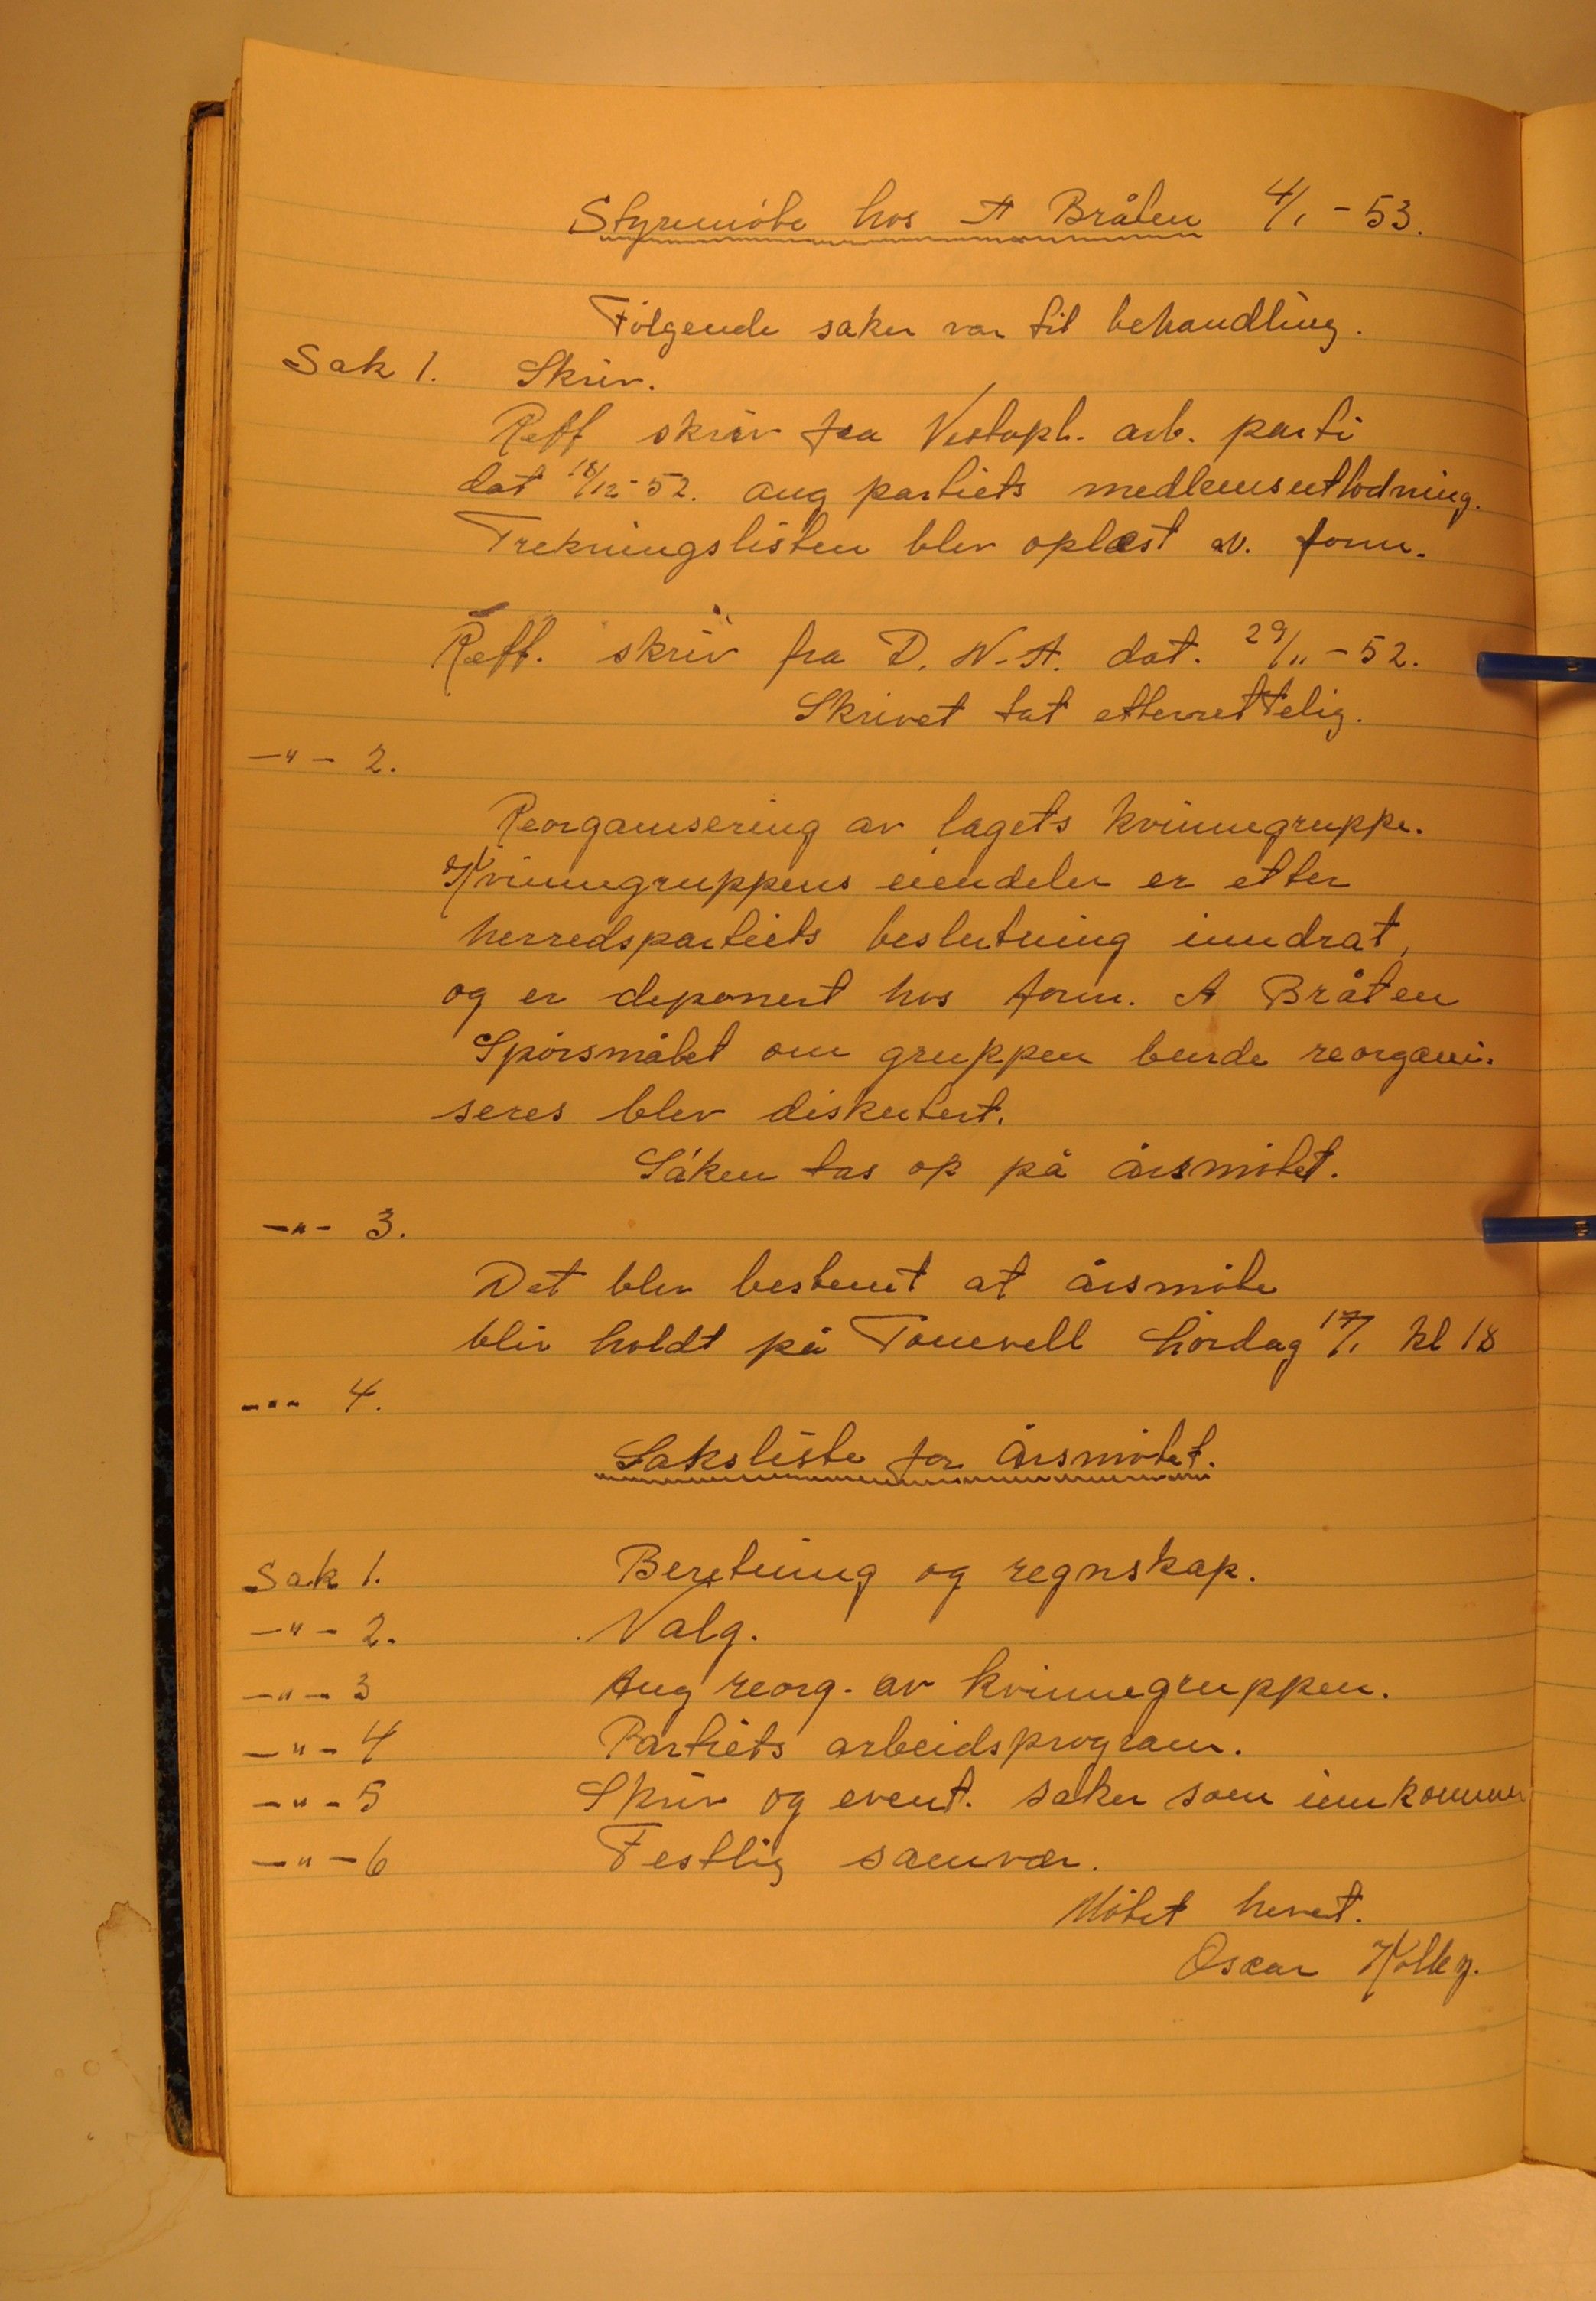 Styremöte hos A Bråten 4/1-53.
Følgende saker var til behandling.
Sak 1. Skriv.
Reff skriv fra Vestopl. arb. parti
dat 18/12-52. ang partiets medlemsutlodning.
Trekningslisten blev oplæst av. form.
Reff. skriv fra D. N. A. dat. 29/11-52.
Skrivet tat etterrettelig.
-"- 2.
Reorganisering av lagets kvinnegruppe.
Kvinnegruppens eiendeler er etter
herredspartiets beslutning inndrat,
og er deponert hos form. A Bråten
Spørsmålet om gruppen burde reorgani-
seres blev diskutert.
Saken tas op på årsmötet.
-"- 3.
Det blev bestemt at årsmöte
blir holdt på Tomvell lördag 17/1 kl 18
-"- 4.
Saksliste for Årsmötet.
Sak 1. Beretning og regnskap.
-"- 2. Valg.
-"- 3 Ang reorg. av kvinnegruppen.
-"- 4 Partiets arbeidsprogram.
-"- 5 Skriv og event. saker som innkommer
-"- 6 Festlig samvær.
Mötet hevet.
Oscar Kolby.